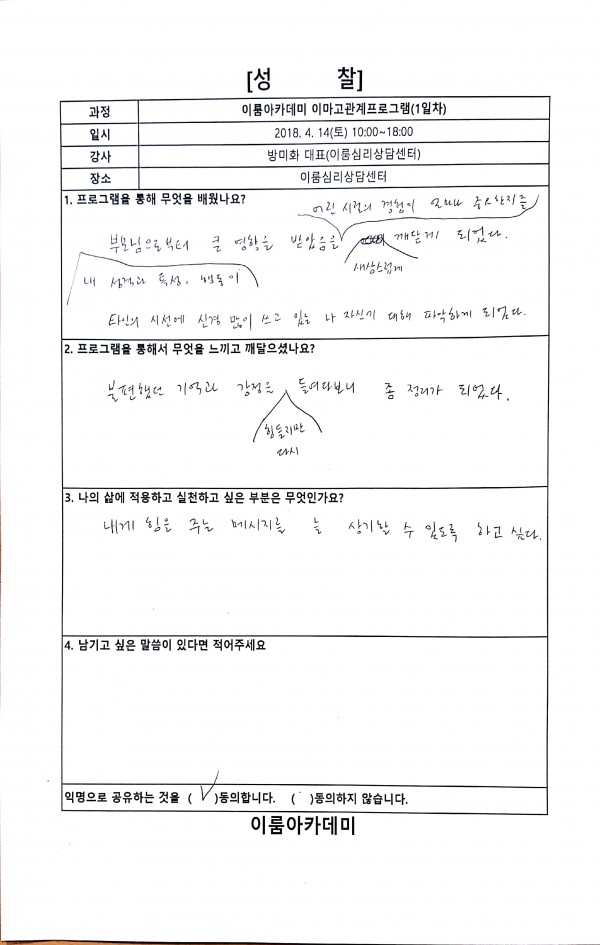 [성 찰]
과정 이룸아카데미 이마고관계프로그램(1일차)
일시 2018. 4. 14(토) 10:00~18:00
강사 방미화 대표(이룸심리상담센터)
장소 이룸심리상담센터
1. 프로그램을 통해 무엇을 배웠나요?
어린 시절의 경험이 얼마나 중요한지를
부모님으로부터 큰 영향을 받았음을 깨닫게 되었다.
새삼스럽게
내 성격과 특성, 행동이
타인의 시선에 신경 많이 쓰고 있는 나 자신에 대해 파악하게 되었다.
2. 프로그램을 통해서 무엇을 느끼고 깨달으셨나요?
불편했던 기억과 감정을 들여다보니 좀 정리가 되었다.
힘들지만
다시
3. 나의 삶에 적용하고 실천하고 싶은 부분은 무엇인가요?
내게 힘을 주는 메시지를 늘 상기할 수 있도록 하고 싶다.
4. 남기고 싶은 말씀이 있다면 적어주세요
익명으로 공유하는 것을 (√)동의합니다. ( )동의하지 않습니다.
이룸아카데미